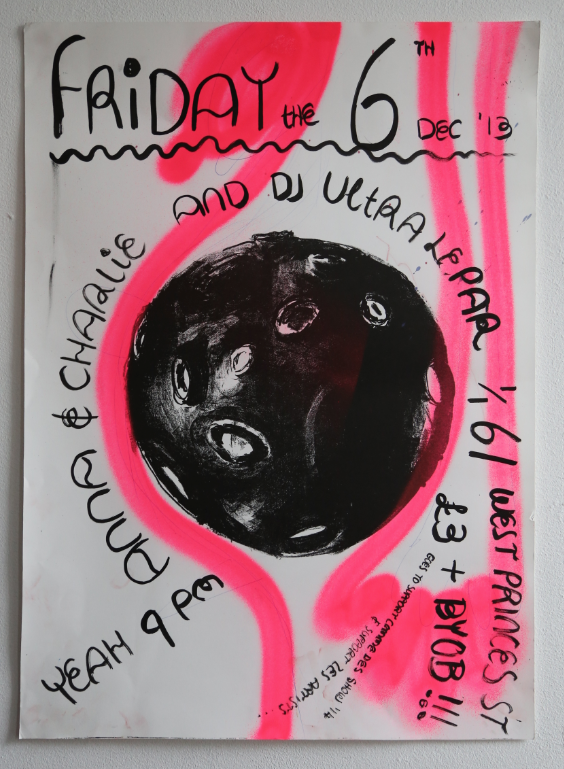 FRiDAY the 6TH DEC '13
ANNA & CHARLiE AND DJ ULtRA LEPAR
1/1, 61 WEST PRINCES ST
£3 + BYOB !!!
GOES TO SUPPORT COMME DES SHOW '14
& SUPPORT LES ARTISTS...
YEAH 9 PM